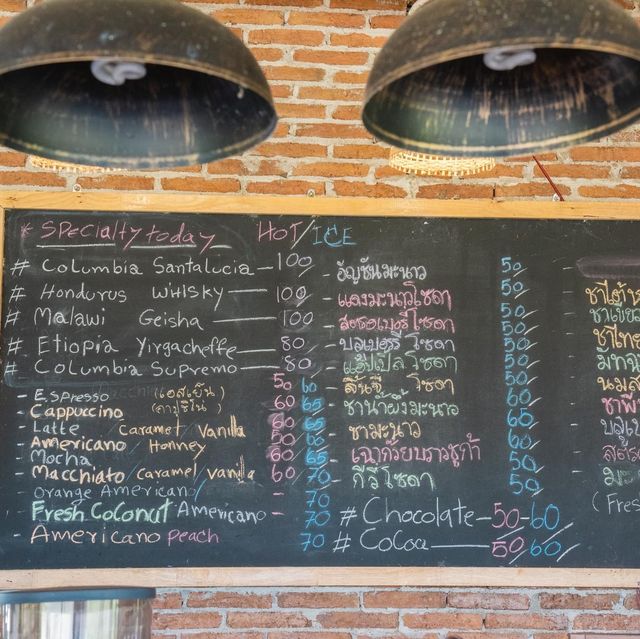 * Specialty today HOT/ICE
# Columbia Santalucia — 100
# Hondurus WHISKY — 100
# Malawi Geisha — 100
# Etiopia Yirgacheffe — 80
# Columbia Supremo — 80
- Espresso (เอสเย็น) 50 60
- Cappuccino (คาปูชิโน่) 60 65
- Latte / Caramel / Vanilla 60 65
- Americano Honney 50 65
- Mocha 60 65
- Macchiato / Caramel / vanilla 60 70
- Orange Americano - 70
- Fresh Coconut Americano - 70
- Americano peach 70
- อัญชันมะนาว 50
- แดงมะนาวโซดา 50
- สตอเบอรี่โซดา 50
- บลูเบอร์รี่ โซดา 50
- แอปเปิ้ลโซดา 50
- ลิ้นจี่ โซดา 50
- ชาน้ำผึ้งมะนาว 60
- ชามะนาว 60
- เฉาก๊วยบราวชูก้า 50
- กีวี่โซดา 50
# Chocolate — 50 - 60
# Cocoa — 50 60
ชาไทย
(Fres